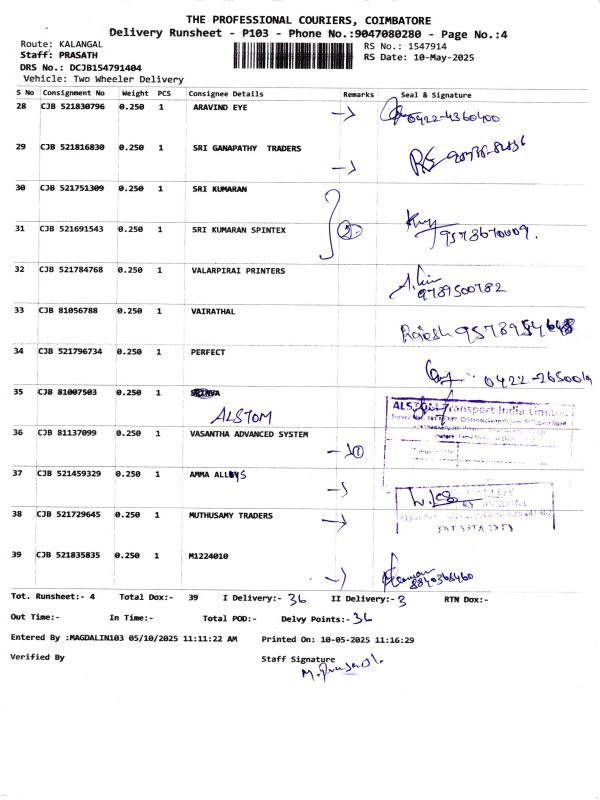 THE PROFESSIONAL COURIERS, COIMBATORE
Delivery Runsheet - P103 - Phone No.:9047080280 - Page No.:4
Route: KALANGAL RS No.: 1547914
Staff: PRASATH RS Date: 10-May-2025
DRS No.: DCJB154791404
Vehicle: Two Wheeler Delivery
S No Consignment No Weight PCS Consignee Details Remarks Seal & Signature
28 CJB 521830796 0.250 1 ARAVIND EYE 0422-4360400
29 CJB 521816830 0.250 1 SRI GANAPATHY TRADERS
30 CJB 521751309 0.250 1 SRI KUMARAN
31 CJB 521691543 0.250 1 SRI KUMARAN SPINTEX 2 9578670009.
32 CJB 521784768 0.250 1 VALARPIRAI PRINTERS
9789500782
33 CJB 81056788 0.250 1 VAIRATHAL Rajesh
34 CJB 521796734 0.250 1 PERFECT
0422-2650019
35 CJB 81007503 0.250 1
ALSTOM ALSTOM Transport India Limited
36 CJB 81137099 0.250 1 VASANTHA ADVANCED SYSTEM
1
37 CJB 521459329 0.250 1 AMMA ALLOYS
38 CJB 521729645 0.250 1 MUTHUSAMY TRADERS
39 CJB 521835835 0.250 1 M1224010
Tot. Runsheet:- 4 Total Dox:- 39 I Delivery:- 36 II Delivery:- 3 RTN Dox:-
Out Time:- In Time:- Total POD:- Delvy Points:- 36
Entered By :MAGDALIN103 05/10/2025 11:11:22 AM Printed On: 10-05-2025 11:16:29
Verified By Staff Signature